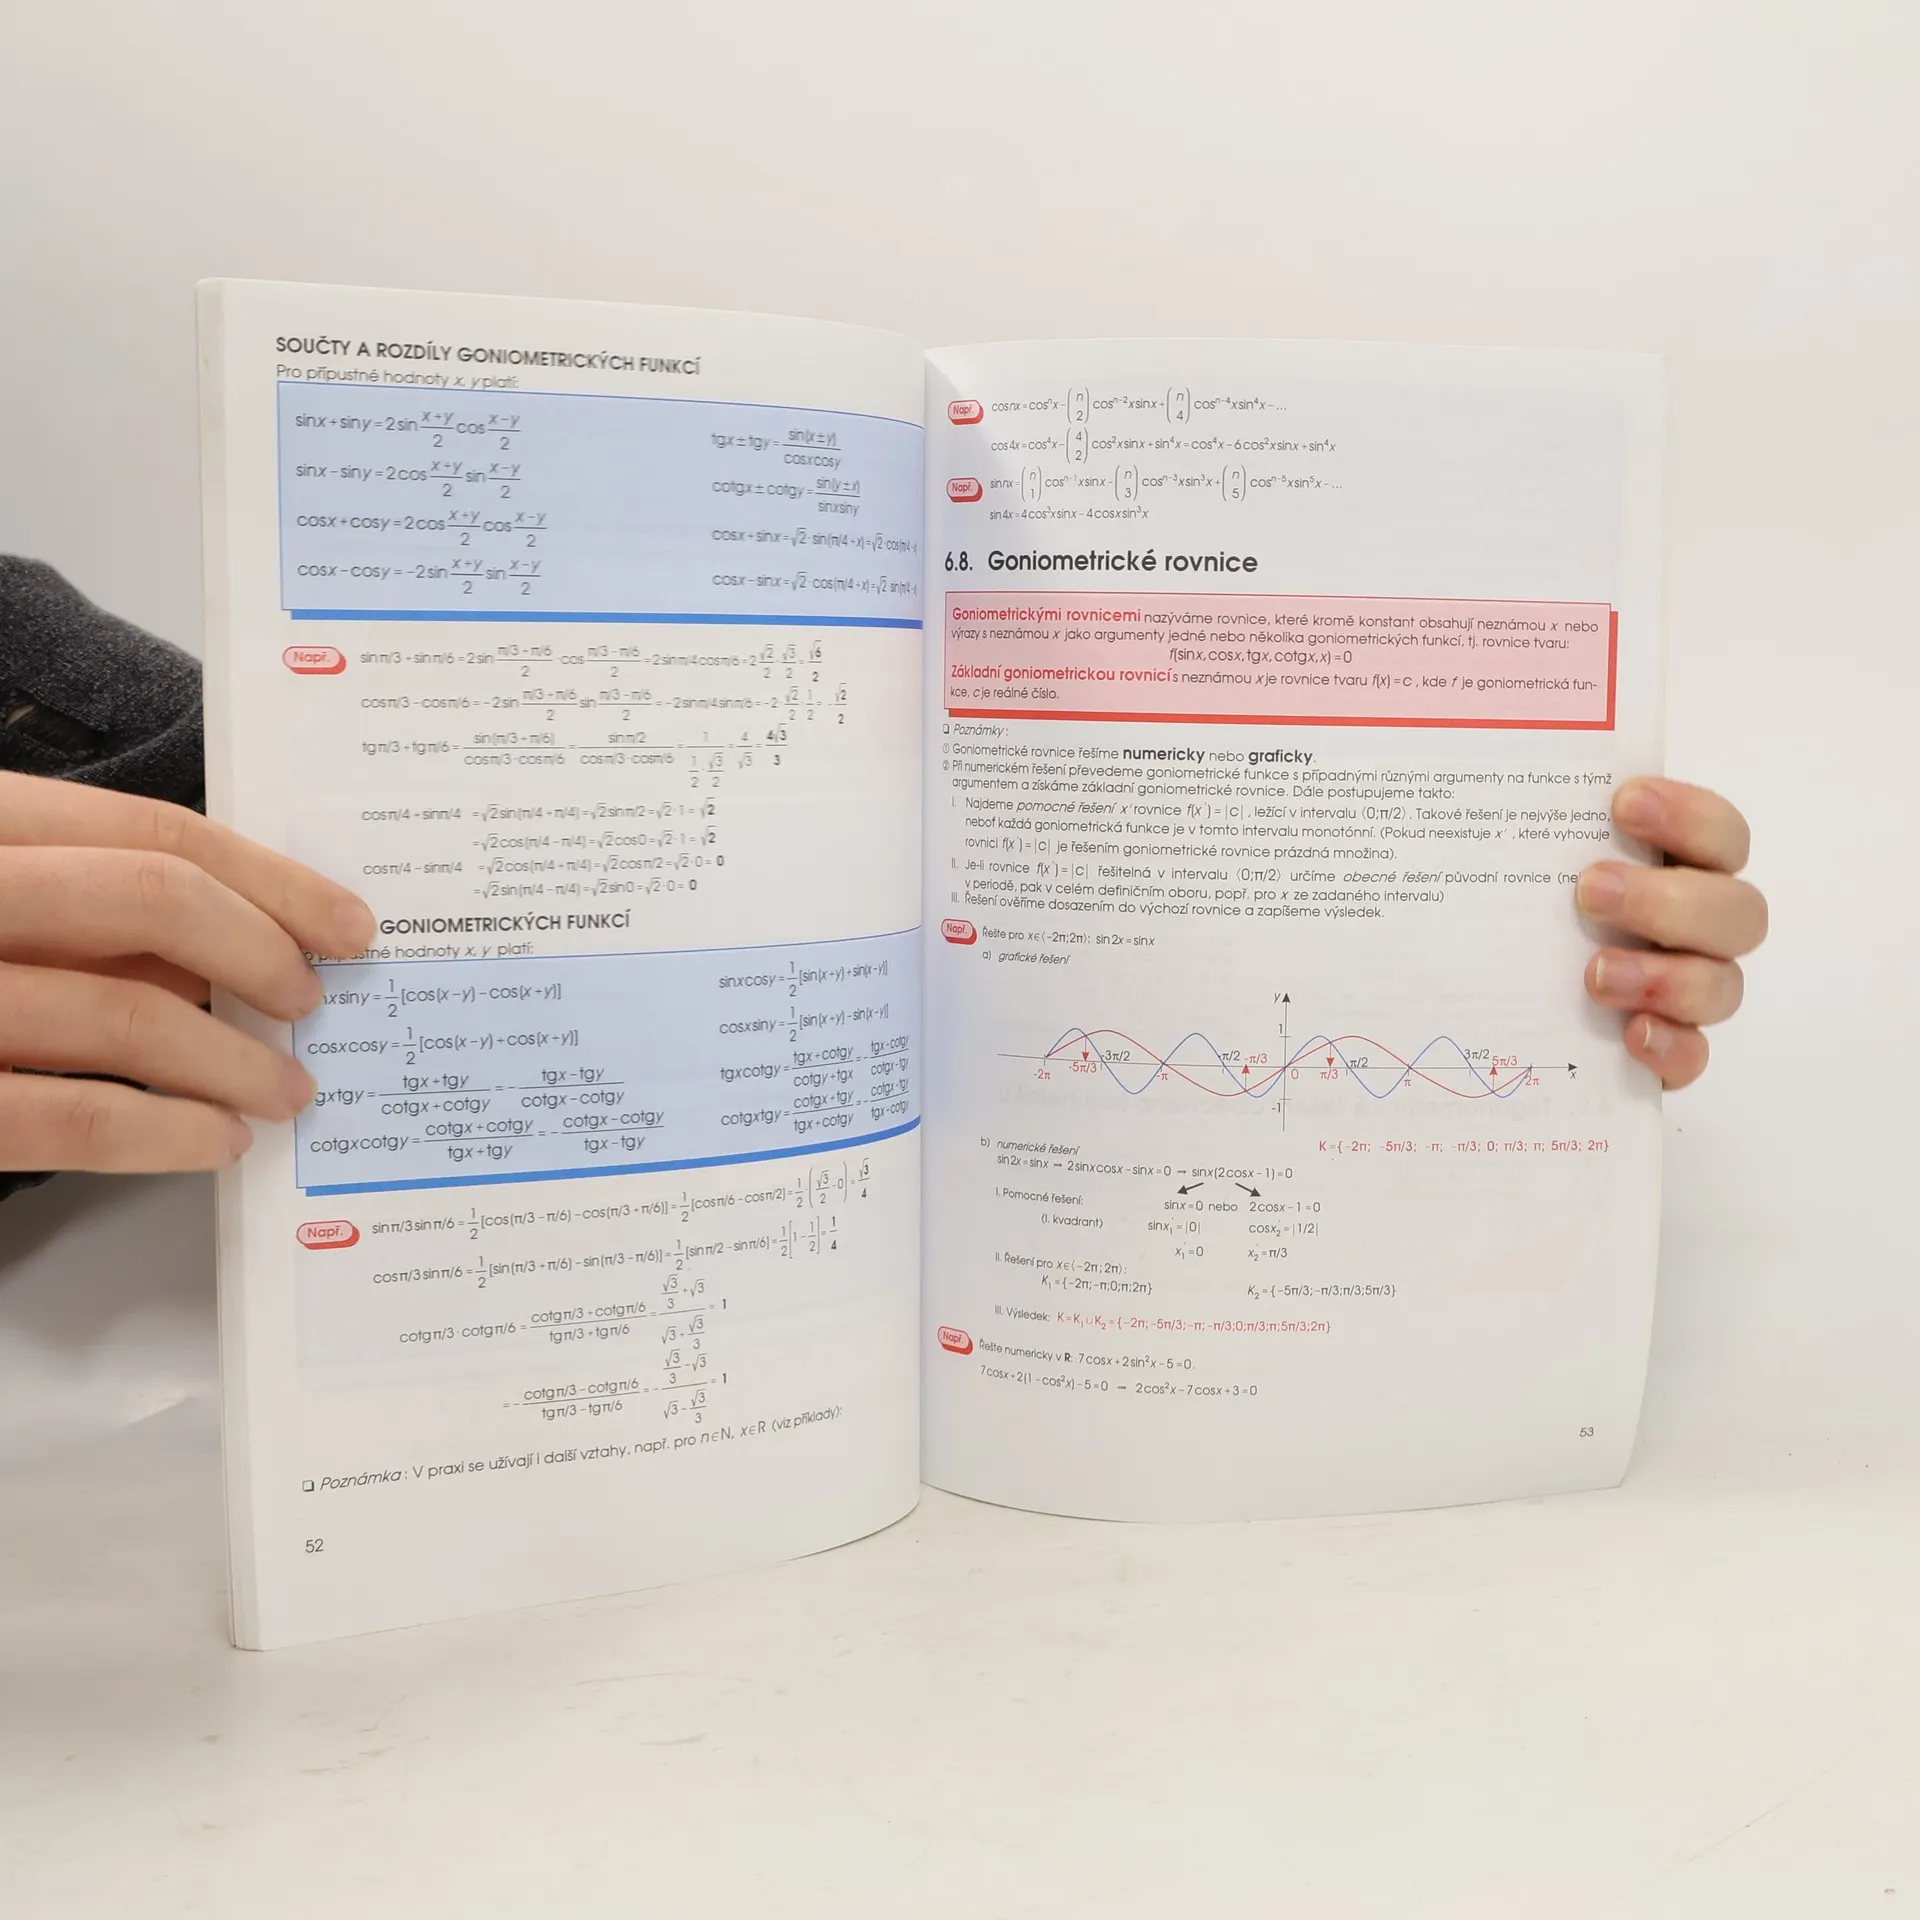 SOUČTY A ROZDÍLY GONIOMETRICKÝCH FUNKCÍ
Pro přípustné hodnoty x, y platí:
sinx+siny=2sin (x+y)/2 cos (x-y)/2
tgx±tgy= sin(x±y)/cosxcosy
sinx-siny=2cos (x+y)/2 sin (x-y)/2
cotgx±cotgy= sin(y±x)/sinxsiny
cosx+cosy=2cos (x+y)/2 cos (x-y)/2
cosx+sinx=√2·sin(π/4+x)=√2·cos(π/4-x
cosx-cosy=-2sin (x+y)/2 sin (x-y)/2
cosx-sinx=√2·cos(π/4+x)=√2·sin(π/4-x
Např. sinπ/3+sinπ/6=2sin (π/3+π/6)/2 ·cos (π/3-π/6)/2 =2sinπ/4cosπ/6=2 √2/2 · √3/2 = √6/2
cosπ/3-cosπ/6=-2sin (π/3+π/6)/2 sin (π/3-π/6)/2 =-2sinπ/4sinπ/6=-2· √2/2 · 1/2 =- √2/2
tgπ/3+tgπ/6= sin(π/3+π/6)/cosπ/3·cosπ/6 = sinπ/2/cosπ/3·cosπ/6 = 1/(1/2 · √3/2) = 4/√3 = 4√3/3
cosπ/4+sinπ/4 =√2sin(π/4+π/4)=√2sinπ/2=√2·1=√2
=√2cos(π/4-π/4)=√2cos0=√2·1=√2
cosπ/4-sinπ/4 =√2cos(π/4+π/4)=√2cosπ/2=√2·0=0
=√2sin(π/4-π/4)=√2sin0=√2·0=0
GONIOMETRICKÝCH FUNKCÍ
hodnoty x, y platí:
xsiny= 1/2 [cos(x-y)-cos(x+y)]
sinxcosy= 1/2 [sin(x+y)+sin(x-y)]
cosxcosy= 1/2 [cos(x-y)+cos(x+y)]
cosxsiny= 1/2 [sin(x+y)-sin(x-y)]
gxtgy= (tgx+tgy)/(cotgx+cotgy) =- (tgx-tgy)/(cotgx-cotgy)
tgxcotgy= (tgx+cotgy)/(cotgy+tgx) =- (tgx-cotgy)/(cotgx-tgy)
cotgxcotgy= (cotgx+cotgy)/(tgx+tgy) =- (cotgx-cotgy)/(tgx-tgy)
cotgxtgy= (cotgx+tgy)/(tgx+cotgy) =- (cotgx-tgy)/(tgx-cotgy)
Např. sinπ/3sinπ/6= 1/2 [cos(π/3-π/6)-cos(π/3+π/6)]= 1/2 [cosπ/6-cosπ/2]= 1/2 ·(√3/2 -0)= √3/4
cosπ/3sinπ/6= 1/2 [sin(π/3+π/6)-sin(π/3-π/6)]= 1/2 [sinπ/2-sinπ/6]= 1/2 [1- 1/2]= 1/4
cotgπ/3·cotgπ/6= (cotgπ/3+cotgπ/6)/(tgπ/3+tgπ/6) = (√3/3 +√3)/(√3+ √3/3) =1
=- (cotgπ/3-cotgπ/6)/(tgπ/3-tgπ/6) =- (√3/3 -√3)/(√3- √3/3) =1
❑ Poznámka: V praxi se užívají i další vztahy, např. pro n∈N, x∈R (viz příklady):
52
Např. cosnx=cosⁿx-(n 2)cosⁿ⁻²xsinx+(n 4)cosⁿ⁻⁴xsin⁴x-...
cos4x=cos⁴x-(4 2)cos²xsinx+sin⁴x=cos⁴x-6cos²xsinx+sin⁴x
Např. sinnx=(n 1)cosⁿ⁻¹xsinx-(n 3)cosⁿ⁻³xsin³x+(n 5)cosⁿ⁻⁵xsin⁵x-...
sin4x=4cos³xsinx-4cosxsin³x
6.8. Goniometrické rovnice
Goniometrickými rovnicemi nazýváme rovnice, které kromě konstant obsahují neznámou x nebo
výrazy s neznámou x jako argumenty jedné nebo několika goniometrických funkcí, tj. rovnice tvaru:
f(sinx,cosx,tgx,cotgx,x)=0
Základní goniometrickou rovnicí s neznámou x je rovnice tvaru f(x)=c, kde f je goniometrická fun-
kce, c je reálné číslo.
❑ Poznámky:
① Goniometrické rovnice řešíme numericky nebo graficky.
② Při numerickém řešení převedeme goniometrické funkce s případnými různými argumenty na funkce s týmž
argumentem a získáme základní goniometrické rovnice. Dále postupujeme takto:
I. Najdeme pomocné řešení x' rovnice f(x')=|c|, ležící v intervalu ⟨0;π/2⟩. Takové řešení je nejvýše jedno,
neboť každá goniometrická funkce je v tomto intervalu monotónní. (Pokud neexistuje x', které vyhovuje
rovnici f(x')=|c| je řešením goniometrické rovnice prázdná množina).
II. Je-li rovnice f(x')=|c| řešitelná v intervalu ⟨0;π/2⟩ určíme obecné řešení původní rovnice (ne
v periodě, pak v celém definičním oboru, popř. pro x ze zadaného intervalu)
III. Řešení ověříme dosazením do výchozí rovnice a zapíšeme výsledek.
Např. Řešte pro x∈⟨-2π;2π⟩: sin2x=sinx
a) grafické řešení
y
1
-2π -5π/3 -3π/2 -π -π/2 -π/3 0 π/3 π/2 π 3π/2 5π/3 2π x
-1
K={-2π; -5π/3; -π; -π/3; 0; π/3; π; 5π/3; 2π}
b) numerické řešení
sin2x=sinx → 2sinxcosx-sinx=0 → sinx(2cosx-1)=0
I. Pomocné řešení: sinx=0 nebo 2cosx-1=0
(I. kvadrant) sinx₁'=|0| cosx₂'=|1/2|
x₁'=0 x₂'=π/3
II. Řešení pro x∈⟨-2π;2π⟩:
K₁={-2π;-π;0;π;2π} K₂={-5π/3;-π/3;π/3;5π/3}
III. Výsledek: K=K₁∪K₂={-2π;-5π/3;-π;-π/3;0;π/3;π;5π/3;2π}
Např. Řešte numericky v R: 7cosx+2sin²x-5=0.
7cosx+2(1-cos²x)-5=0 → 2cos²x-7cosx+3=0
53